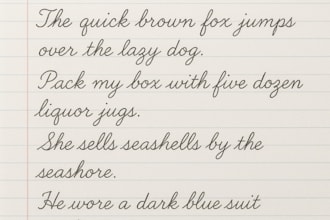 The quick brown fox jumps
over the lazy dog.
Pack my box with five dozen
liquor jugs.
She sells seashells by the
seashore.
He wore a dark blue suit